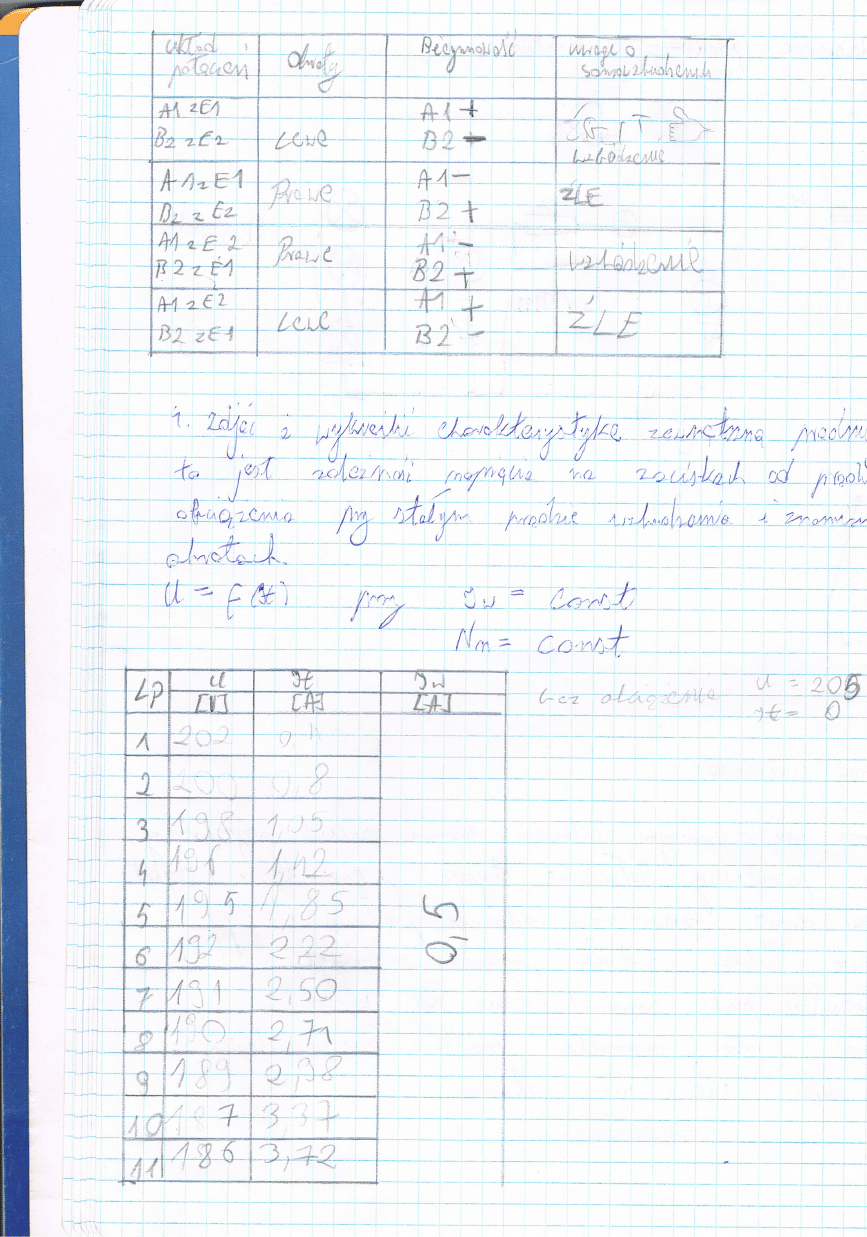 układ połączeń | Obroty | Biegunowość | uwagi o samowzbudzeniu
A1 z E1 B2 z E2 | Lewe | A1 + B2 - | wzbudzenie
A1 z E1 B2 z E2 | Prawe | A1 - B2 + | ŹLE
A1 z E2 B2 z E1 | Prawe | A1 - B2 + | wzbudzenie
A1 z E2 B2 z E1 | Lewe | A1 + B2 - | ŹLE
1. Zdjąć i wykreślić charakterystykę zewnętrzną
to jest zależność napięcia na zaciskach od
obciążenia przy stałym prądzie wzbudzenia i
obrotach.
U = f(It) przy Iw = const
Nn = const
LP | U [V] | It [A] | Iw [A]
bez obciążenia U = 205
It = 0
1 | 202
2 | 200 | 0,8
3 | 198 | 1,05
4 | 1,42
5 | 195 | 1,85 | 0,5
6 | 192 | 2,22
7 | 191 | 2,50
8 | 190 | 2,71
9 | 189 | 2,98
10 | 187 | 3,37
11 | 186 | 3,72